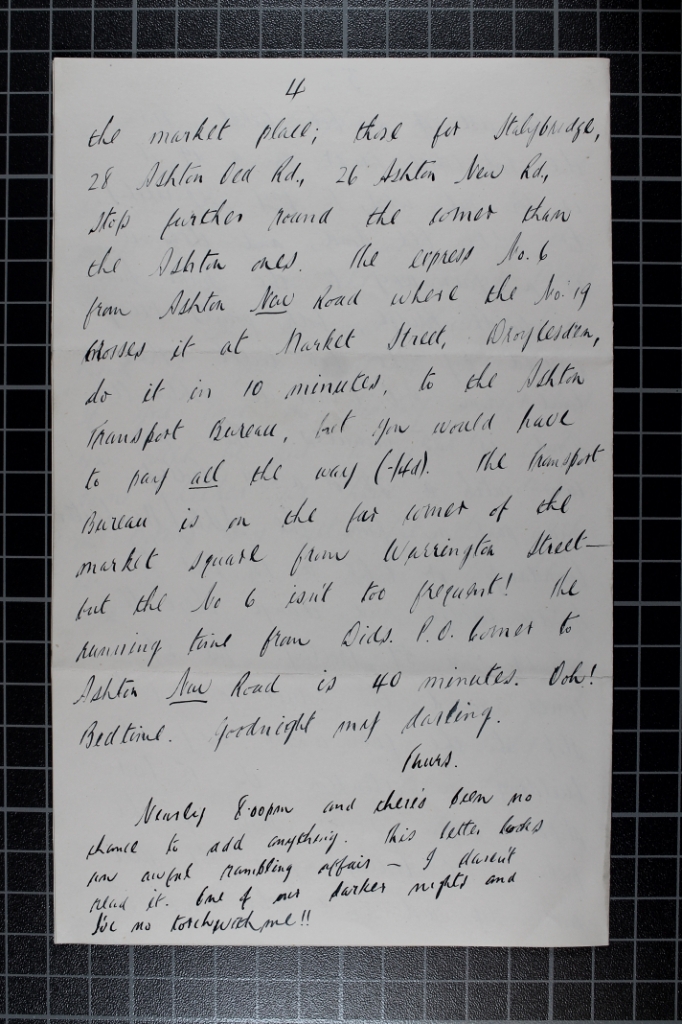 4
the market place; those for Stalybridge,
28 Ashton Old Rd., 26 Ashton New Rd.,
stop further round the corner than
the Ashton ones. The express No. 6
from Ashton New Road where the No. 19
crosses it at Market Street, Droylesden,
do it in 10 minutes, to the Ashton
Transport Bureau, but you would have
to pay all the way (-/4d). The Transport
Bureau is on the far corner of the
market square from Warrington Street—
but the No 6 isn't too frequent! The
running time from Dids. P.O. Corner to
Ashton New Road is 40 minutes. Ooh!
Bedtime. Goodnight my darling.
Thurs.
Nearly 8.00pm and there's been no
chance to add anything. This letter looks
an awful rambling affair — I daren't
read it. One of our darker nights and
I've no torch with me!!